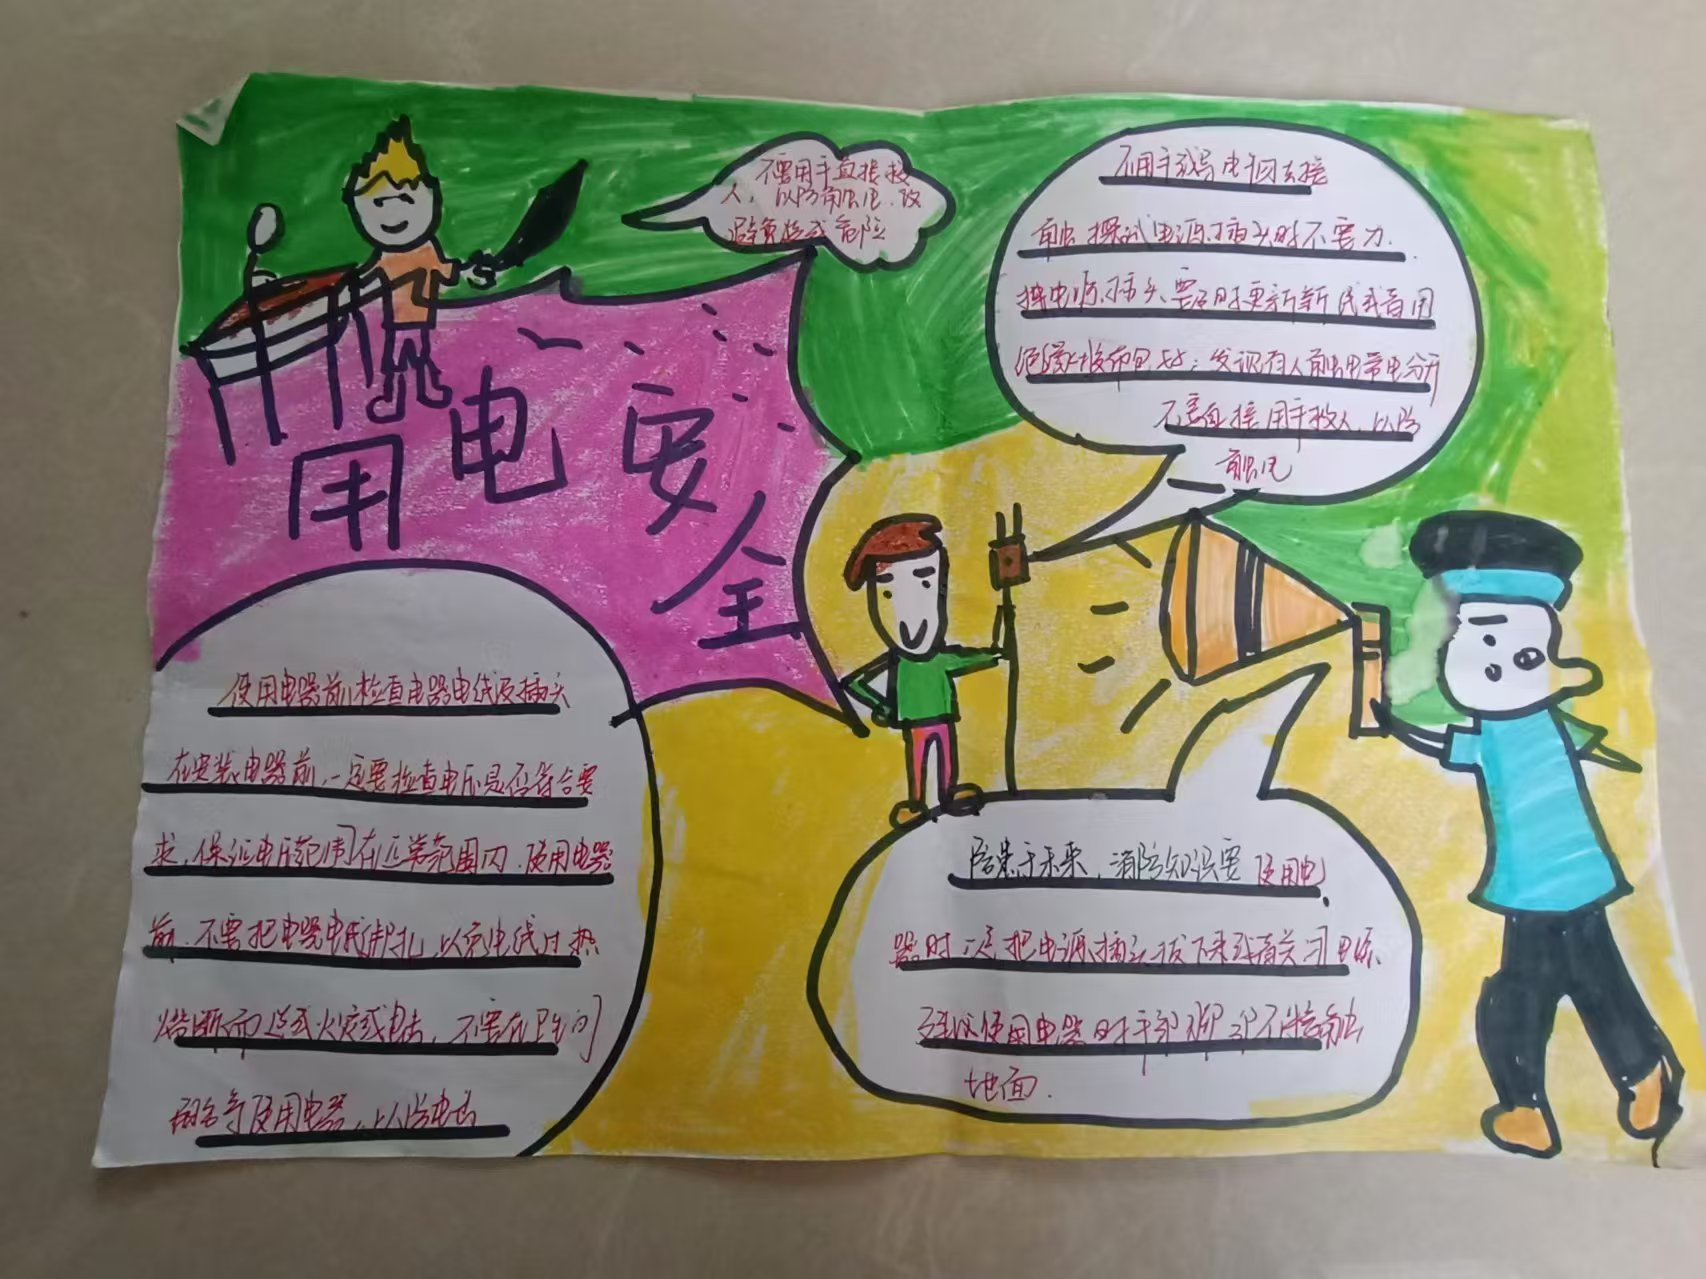 用电安全
不要用手直接救
人，以防触电，
避免造成危险
不用手或导电物去接
触探试电源插头时不要力.
电源插头要及时更新新线或者用
绝缘胶布包好；发现有人触电带电分开
不要直接用手救人，以防
触电
使用电器前检查电器电线及插头
在安装电器前，一定要检查电压是否符合要
求，保证电压范围在正常范围内，使用电器
前，不要把电器电线绑扎，以免电线过热
熔断而造成火灾或电击，不要在卫生间
使用电器，以防电击
隐患于未来，消防知识要 使用电
器时一定把电源插头拔下来或者关闭电源
使用电器时手部脚部不接触
地面.